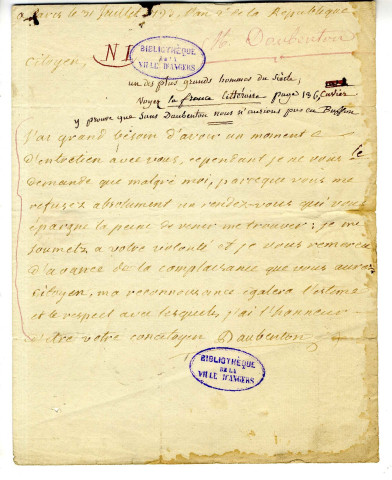 a Paris le 21 juillet 1793, l'an 2e de la République
N I
Mr Daubenton
Citoyen,
BIBLIOTHÈQUE
DE LA
VILLE D'ANGERS
un des plus grands hommes du siècle,
Voyez la france littéraire page 136, Cuvier
y prouve que sans Daubenton nous n'aurions pas eu Buffon
J'ai grand besoin d'avoir un moment
d'entretien avec vous, cependant je ne vous le
demande que malgré moi, parceque vous me
refusez absolument un rendez-vous qui vous
épargne la peine de venir me trouver; je me
soumetz a votre volonté et je vous remercie
d'avance de la complaisance que vous aurez
Citoyen, ma reconnoissance égalera l'estime
et le respect avec lesquels j'ai l'honneur
d'être votre concitoyen Daubenton
BIBLIOTHÈQUE
DE LA
VILLE D'ANGERS